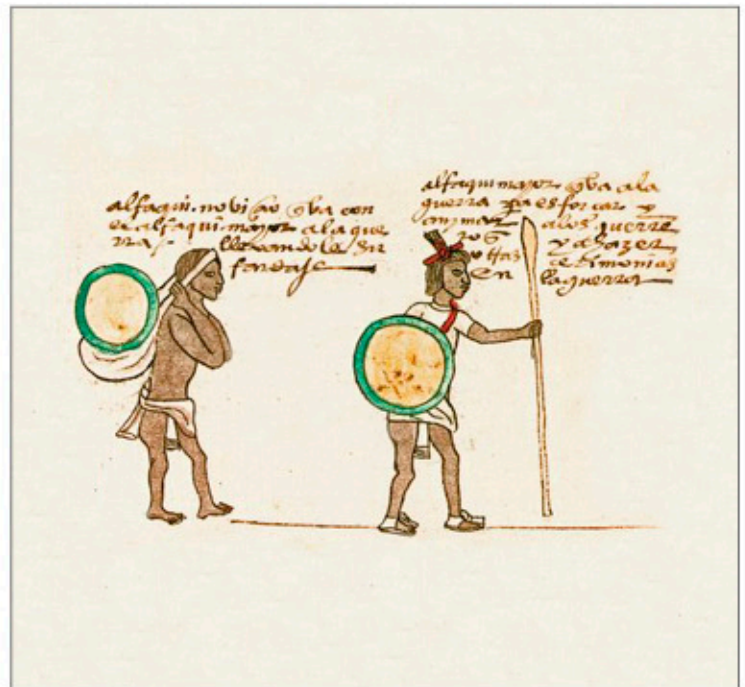 alfaqui. noviçio q̃ va con
el alfaqui. mayor a la gue
rra /. llevandole su
fardaje
alfaqui mayor q̃ va a la
guerra pa esforcar y
anymar a los guerre
ros y a hazer
otras cerimonias
en la guerra